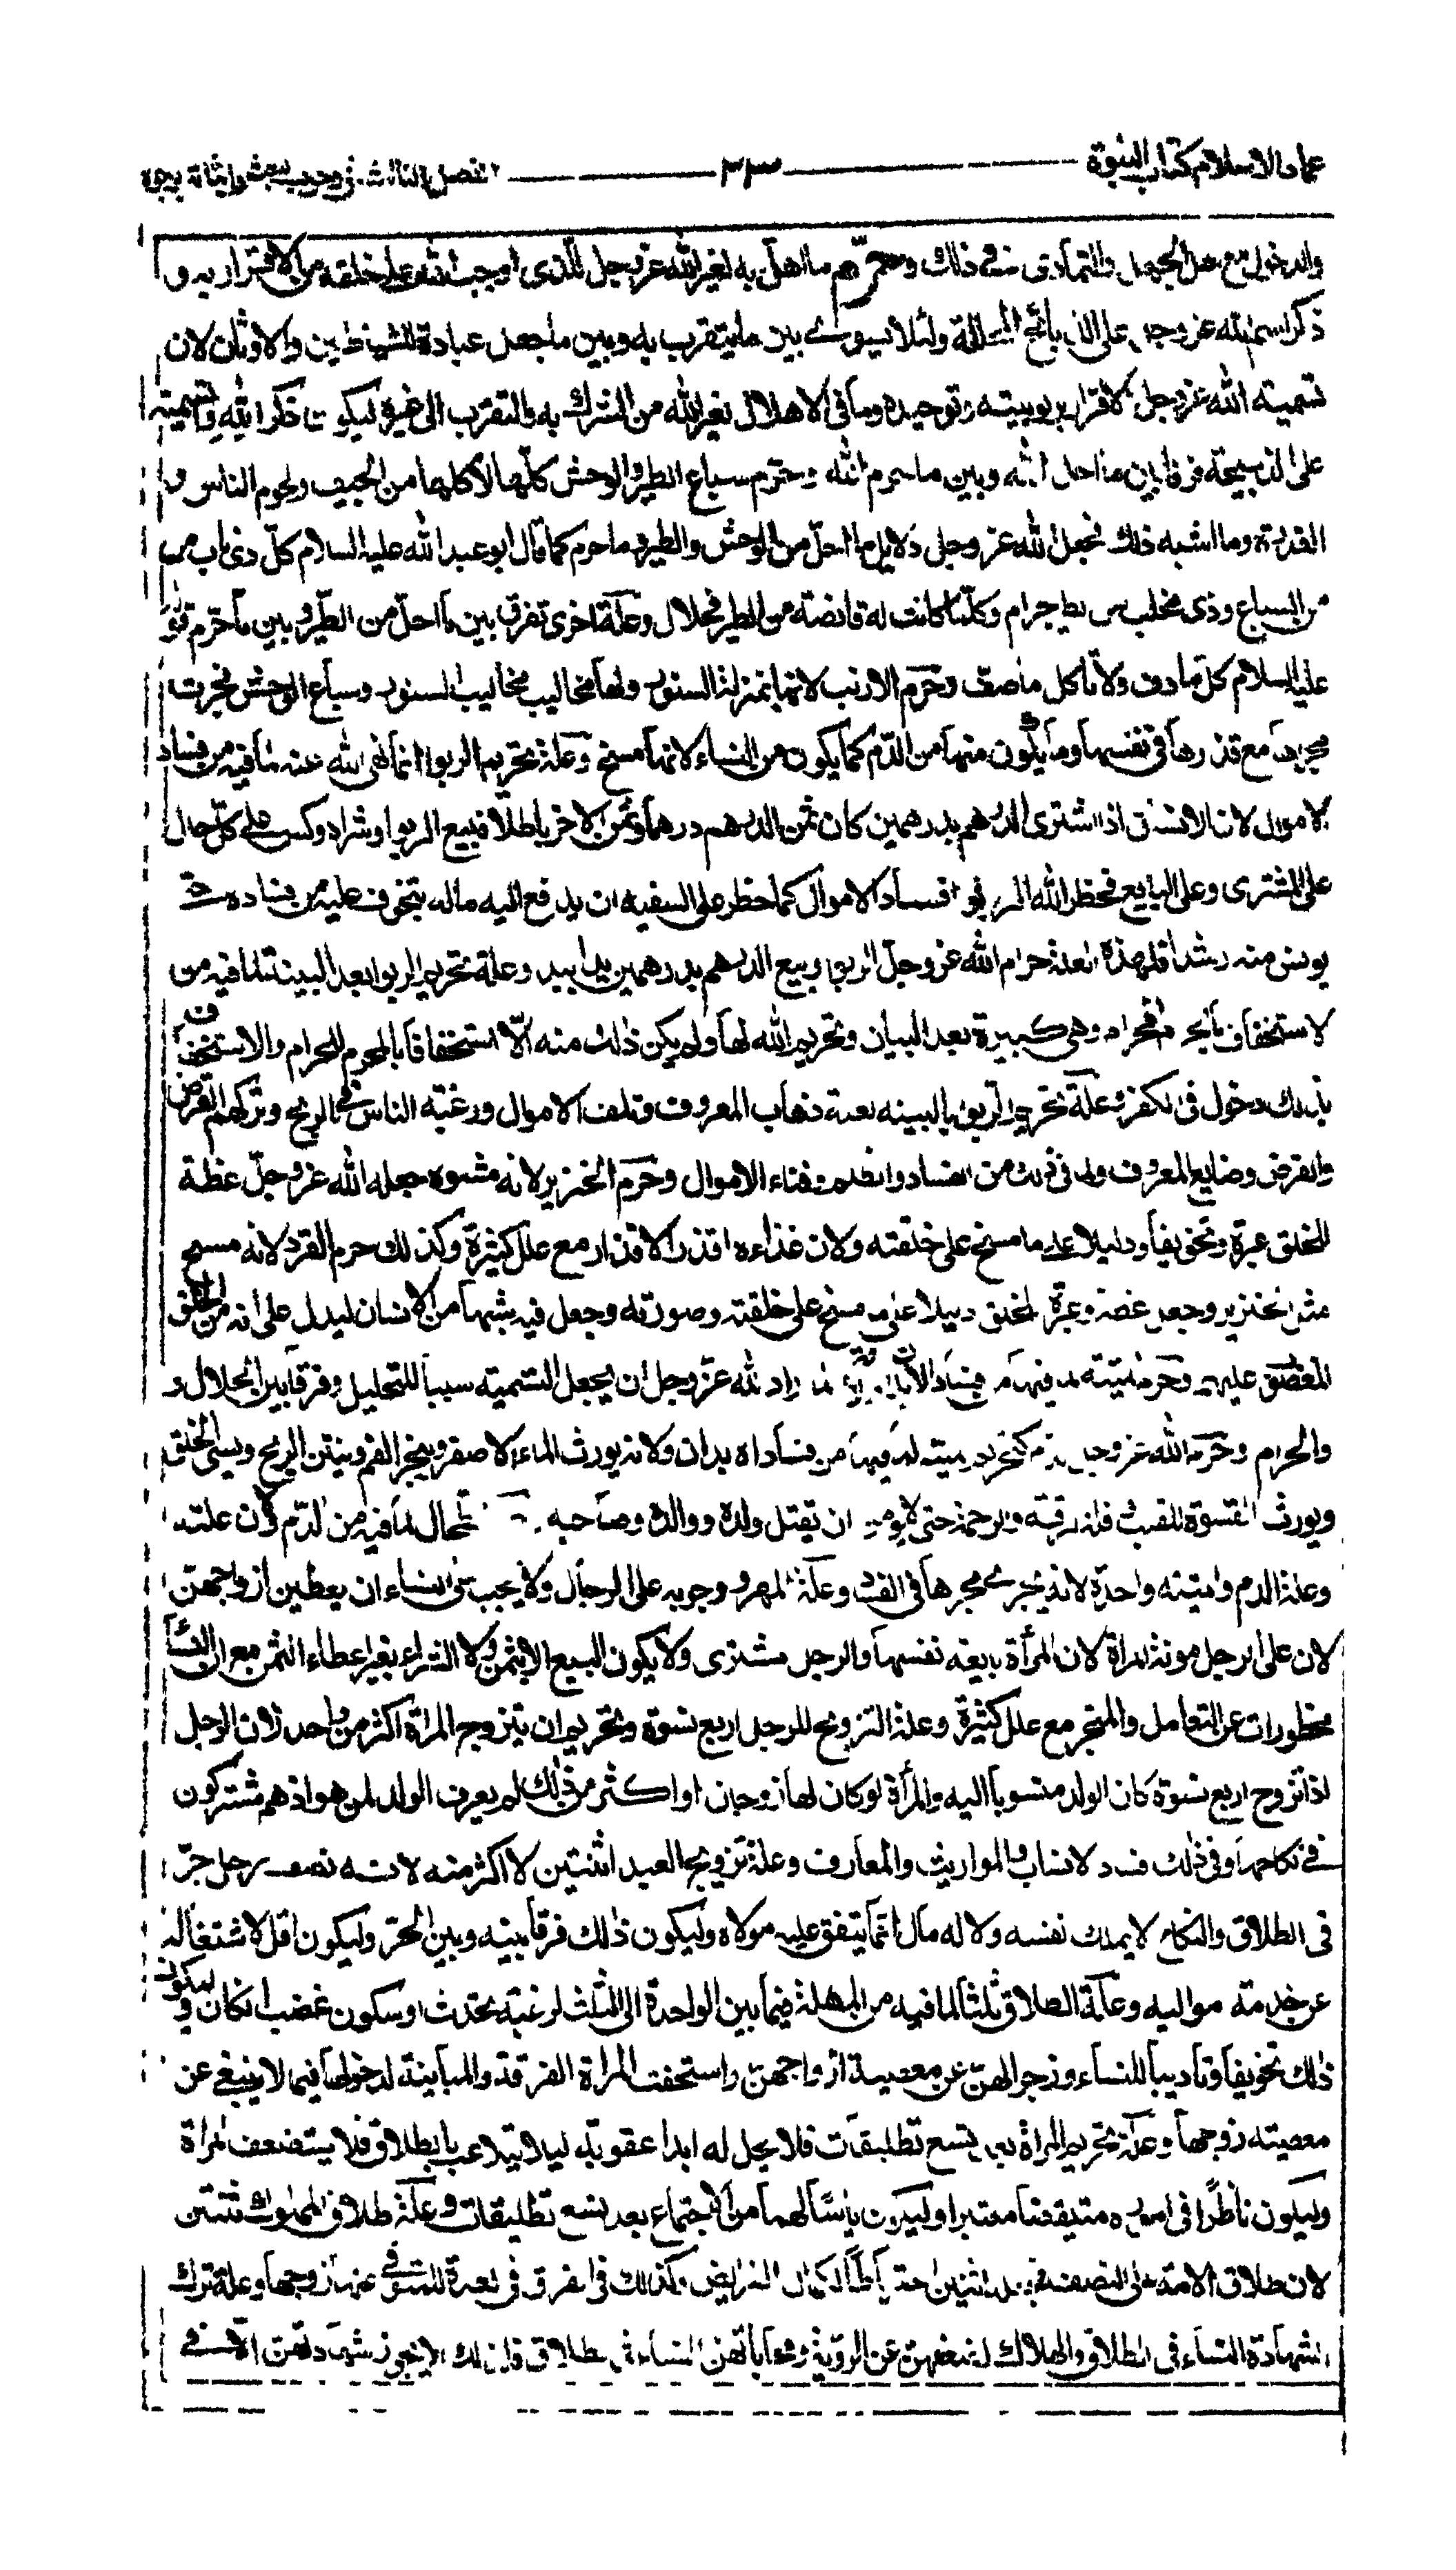 عماد الاسلام كتاب النبوة ٣٣ الفصل الثالث في وجوب البعثة
والدخول مع اهل الجهل والتمادى في ذلك وحرم ما اهل به لغير الله عز وجل للذى اوجب الله على خلقه من الاقرار به و
ذكر اسم الله عز وجل على الذبائح المحللة ولئلا يسوى بين ما يتقرب به وبين ما جعل عبادة للشياطين والاوثان لان
تسمية الله عز وجل الاقرار بربوبيته وتوحيده وما فى الاهلال لغير الله من الشرك به والتقرب الى غيره ليكون ذكر الله وتسميته
على الذبيحة فرقا بين ما احل الله وبين ما حرم الله وحرم سباع الطير والوحش كلها لاكلها من الجيف ولحوم الناس و
القذرة وما اشبه ذلك فجعل الله عز وجل دلايل ما احل من الوحش والطير وما حرم كما قال ابو عبد الله عليه السلام كل ذى ناب
من السباع وذى مخلب من الطير حرام وكلما كانت له قانصة من الطير فحلال وعلة اخرى تفرق بين ما احل من الطير وبين ما حرم قوله
عليه السلام كل ما دف ولا تاكل ما صف وحرم الارنب لانها بمنزلة السنور ولها مخاليب كمخاليب السنور وسباع الوحش فجرت
مجريها مع قذرها فى نفسها وما يكون منها من الدم كما يكون من النساء لانها مسخ وعلة تحريم الربوا انما نهى الله عنه لما فيه من فساد
الاموال لان الانسان اذا اشترى الدرهم بدرهمين كان ثمن الدرهم درهما وثمن الاخر باطلا فبيع الربوا وشراؤه وكس على كل حال
على المشترى وعلى البايع فحظر الله الربو افساد الاموال كما حظر على السفيه ان يدفع اليه ماله يتخوف عليه من فساده حتى
يونس منه رشدا فلهذه العلة حرم الله عز وجل الربوا وبيع الدرهم بدرهمين يدا بيد وعلة تحريم الربوا بعد البينة لما فيه من
الاستخفاف بالحرام المحرم وهى كبيرة بعد البيان وتحريم الله لها ولم يكن ذلك منه الا استخفافا بالمحرم للحرام والاستخفاف
بذلك دخول فى الكفر وعلة تحريم الربوا بالنسيه لعلة ذهاب المعروف وتلف الاموال ورغبة الناس فى الربح وتركهم القرض
والقرض وصنايع المعروف ولما فى ذلك من الفساد والظلم وفناء الاموال وحرم الخنزير لانه مشوه جعله الله عز وجل عظة
للخلق عبرة وتخويفا ودليلا على ما مسخ على خلقته ولان غذاءه اقذر الاقذار مع علل كثيرة وكذلك حرم القرد لانه مسخ
مثل الخنزير وجعل عظة وعبرة للخلق دليلا على ما مسخ على خلقته وصورته وجعل فيه شبها من الانسان ليدل على انه من الخلق
المغضوب عليهم وحرمت الميتة لما فيها من فساد الابدان والافة ولما اراد الله عز وجل ان يجعل التسمية سببا للتحليل وفرقا بين الحلال و
والحرام وحرم الله عز وجل الدم كتحريم الميتة لما فيها من فساد الابدان ولانه يورث الماء الاصفر ويبخر الفم وينتن الريح ويسئ الخلق
ويورث القسوة للقلب وقلة الرقة والرحمة حتى لا يومن ان يقتل ولده ووالده وصاحبه وحرم الطحال لما فيه من الدم ولان علته
وعلة الدم والميتة واحدة لانه يجرى مجرها فى الفساد وعلة المهر ووجوبه على الرجال ولا يجب على النساء ان يعطين ازواجهن
لان على الرجل مونة المراة لان المرأة بايعة نفسها والرجل مشترى ولا يكون البيع الا بثمن ولا الشراء بغير اعطاء الثمن مع ان النساء
محظورات عن التعامل والمتجر مع علل كثيرة وعلة التزويج للرجل اربع نسوة وتحريم ان يتزوج المراة اكثر من واحد لان الرجل
اذا تزوج اربع نسوة كان الولد منسوبا اليه والمرأة لو كان لها زوجان او اكثر من ذلك لم يعرف الولد لمن هو اذ هم مشتركون
فى نكاحها وفى ذلك فساد الانساب والمواريث والمعارف وعلة تزويج العبد اثنتين لا اكثر منه لانه نصف رجل حر
فى الطلاق والنكاح لا يملك نفسه ولا له مال انما ينفق عليه مولاه وليكون ذلك فرقا بينه وبين الحر وليكون اقل لاشتغاله
عن خدمة مواليه وعلة الطلاق ثلثا لما فيه من المهلة فيما بين الواحدة الى الثلث لرغبة تحدث او سكون غضب ان كان ليكون
ذلك تخويفا وتاديبا للنساء وزجرا لهن عن معصية ازواجهن واستحقت المراة الفرقة والمباينة لدخولها فيما لا ينبغى عن
معصيته زوجها وعلة تحريم المراة بعد تسع تطليقات فلا يحل له ابدا عقوبة ليلا يتلاعب بالطلاق فلا يستضعف المراة
وليكون ناظرا فى اموره متيقظا معتبرا وليكون ياسا لهما من الاجتماع بعد تسع تطليقات وعلة طلاق المملوك ثنتين
لان طلاق الامة على النصف فجعله اثنتين احتياطا لكمال الفرايض وكذلك فى الفرق فى العدة للمتوفى عنها زوجها وعلة ترك
شهادة النساء فى الطلاق والهلال لضعفهن عن الروية ومحاباتهن النساء فى طلاق فلذلك لا يجوز شهادتهن الا فى